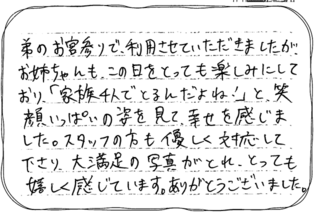 弟のお宮参りで、利用させていただきましたが、
お姉ちゃんも、この日をとっても楽しみにして
おり、「家族4人でとるんだよね！」と、笑
顔いっぱいの姿を見て、幸せを感じま
した。スタッフの方も優しく対応して
下さり、大満足の写真がとれ、とっても
嬉しく感じています。ありがとうございました。